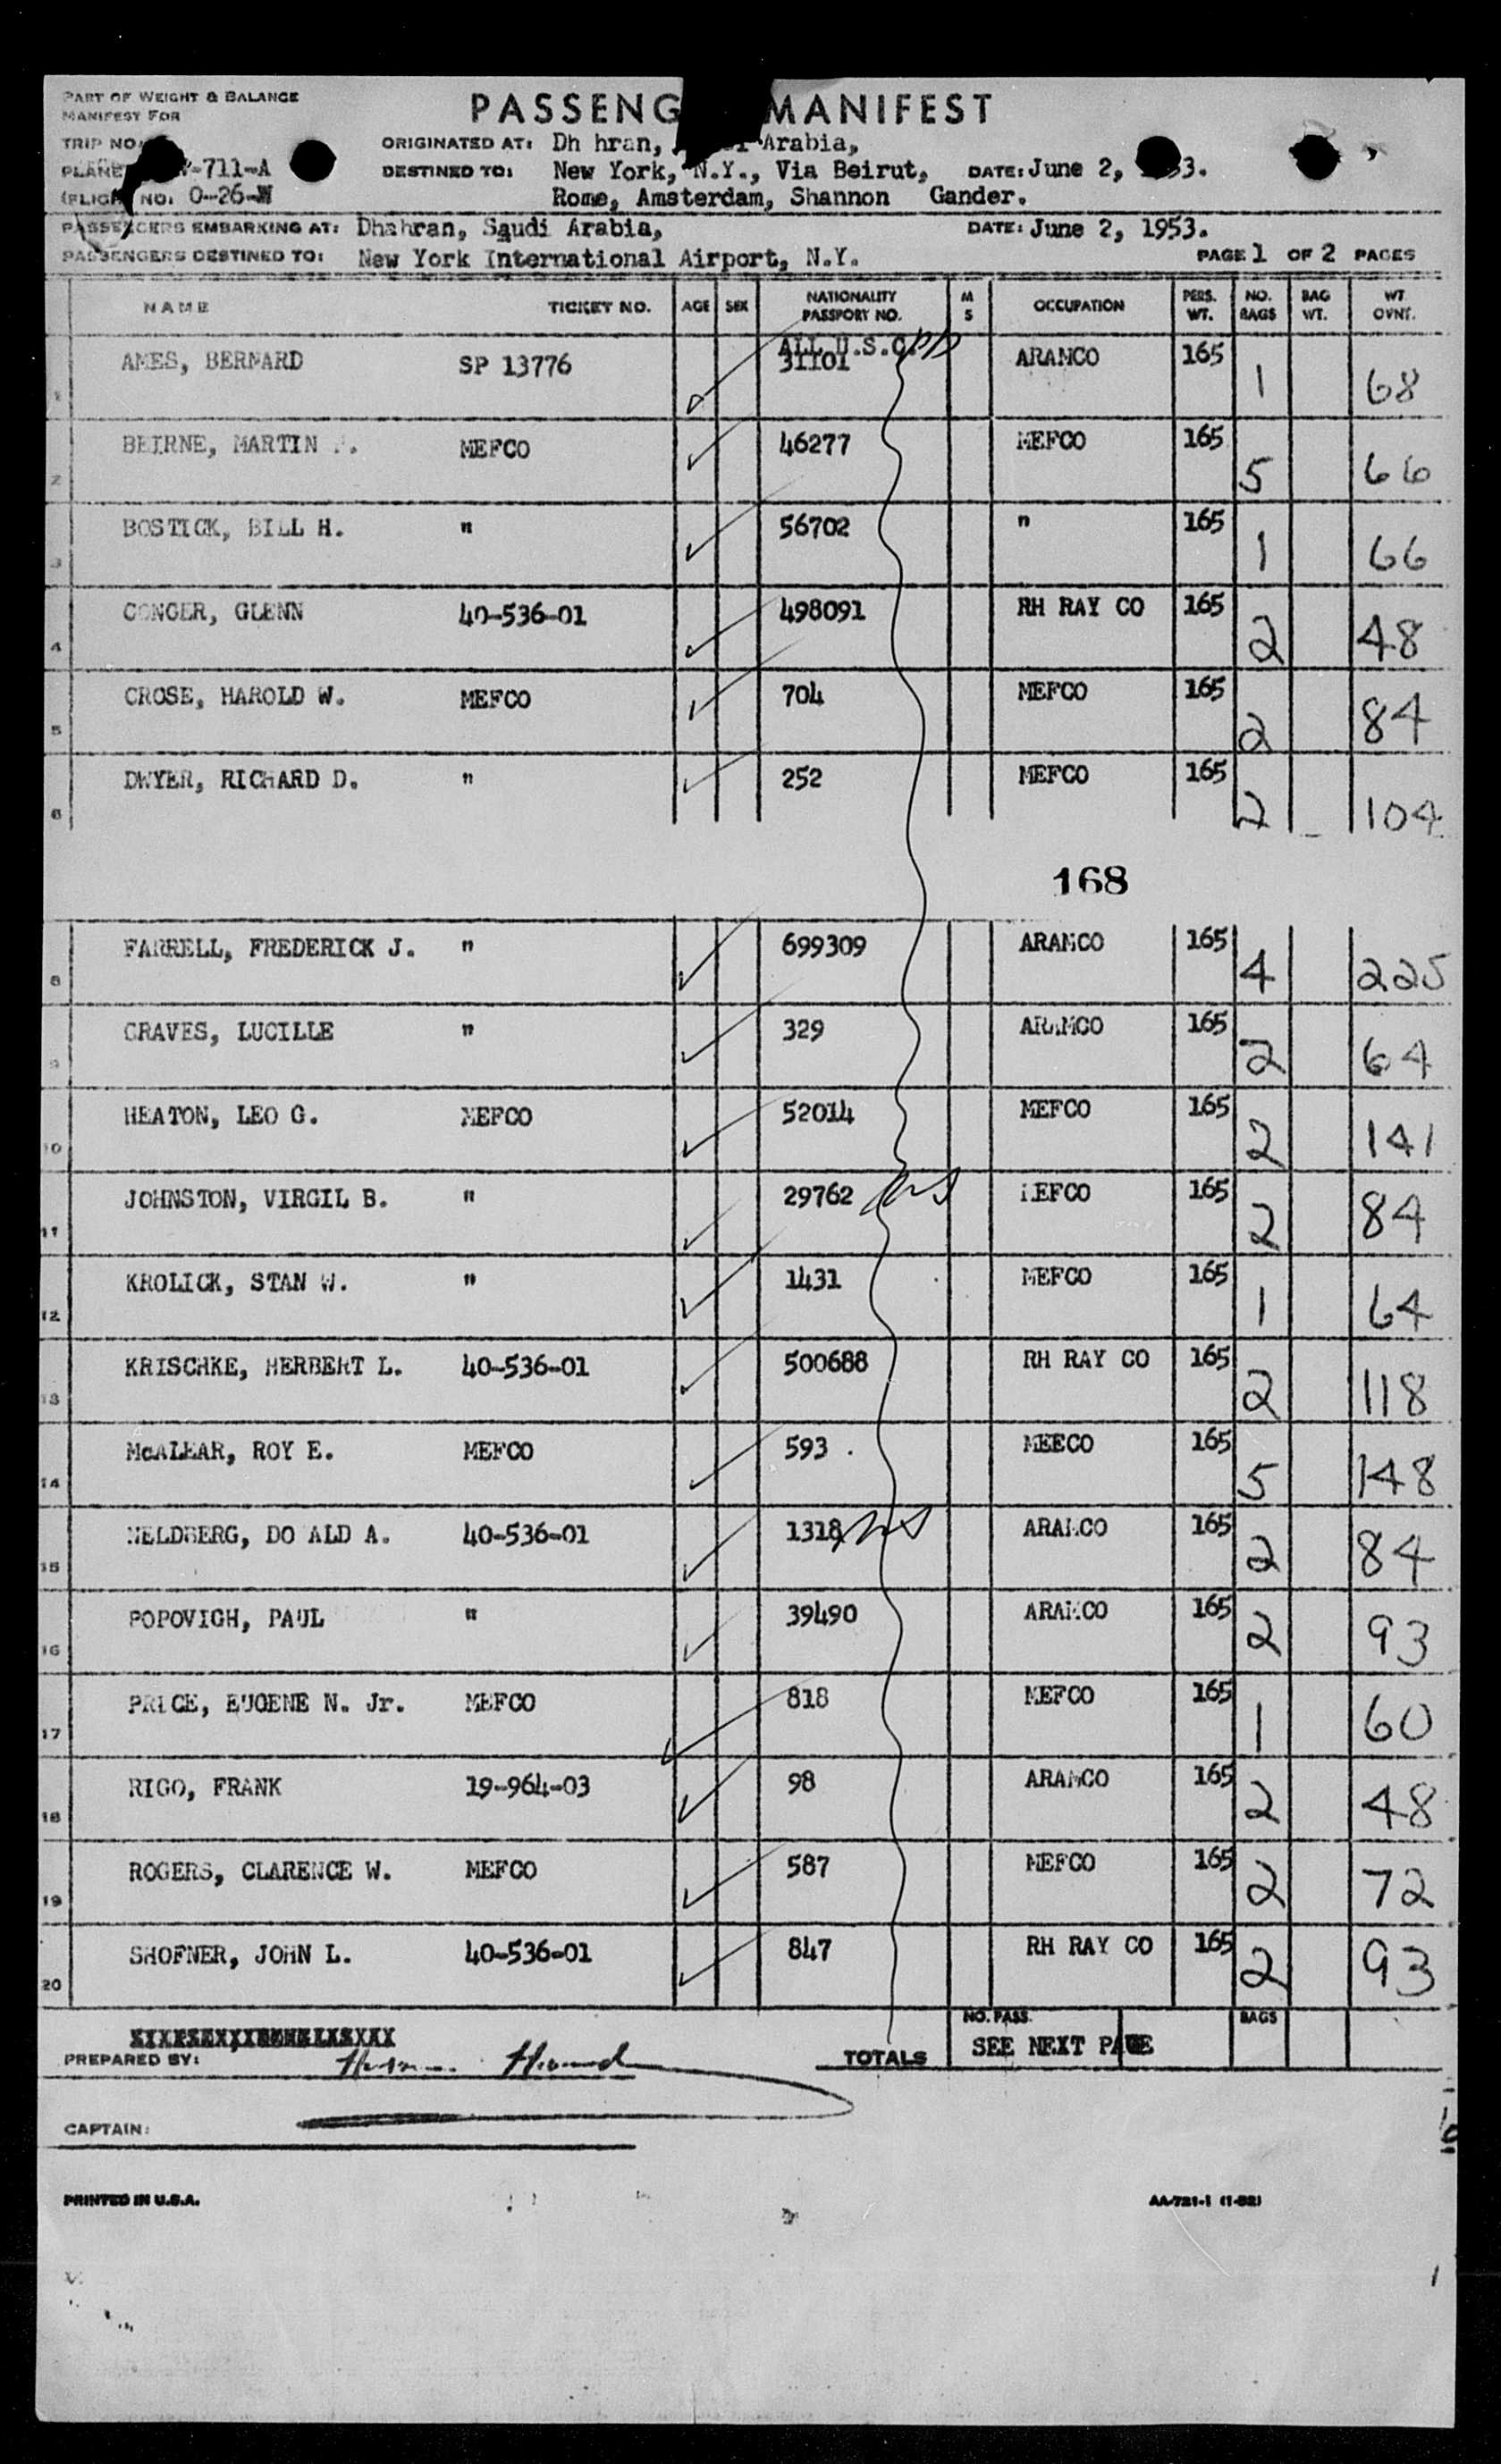 PART OF WEIGHT & BALANCE
MANIFEST FOR
PASSENG MANIFEST
TRIP NO.
ORIGINATED AT: Dh hran, Arabia,
PLANE -711-A
DESTINED TO: New York, N.Y., Via Beirut, DATE: June 2, 53.
(FLIGHT NO. O-26-W
Rome, Amsterdam, Shannon Gander.
PASSENGERS EMBARKING AT: Dhahran, Saudi Arabia, DATE: June 2, 1953.
PASSENGERS DESTINED TO: New York International Airport, N.Y. PAGE 1 OF 2 PAGES
NAME TICKET NO. AGE SEX NATIONALITY PASSPORT NO. M S OCCUPATION PERS. WT. NO. BAGS BAG WT. WT OVNT.
ALL U.S.C.
1 AMES, BERNARD SP 13776 31101 ARAMCO 165 1 68
2 BEIRNE, MARTIN MEFCO 46277 MEFCO 165 5 66
3 BOSTICK, BILL H. " 56702 " 165 1 66
4 CONGER, GLENN 40-536-01 498091 RH RAY CO 165 2 48
5 CROSE, HAROLD W. MEFCO 704 MEFCO 165 2 84
6 DWYER, RICHARD D. " 252 MEFCO 165 2 104
168
8 FARRELL, FREDERICK J. " 699309 ARAMCO 165 4 225
9 GRAVES, LUCILLE " 329 ARAMCO 165 2 64
10 HEATON, LEO G. MEFCO 52014 MEFCO 165 2 141
11 JOHNSTON, VIRGIL B. " 29762 MEFCO 165 2 84
12 KROLICK, STAN W. " 1431 MEFCO 165 1 64
13 KRISCHKE, HERBERT L. 40-536-01 500688 RH RAY CO 165 2 118
14 McALEAR, ROY E. MEFCO 593 . MEECO 165 5 148
15 MELDBERG, DO ALD A. 40-536-01 1318 ARAMCO 165 2 84
16 POPOVICH, PAUL " 39490 ARAMCO 165 2 93
17 PRICE, EUGENE N. Jr. MEFCO 818 MEFCO 165 1 60
18 RIGO, FRANK 19-964-03 98 ARAMCO 165 2 48
19 ROGERS, CLARENCE W. MEFCO 587 MEFCO 165 2 72
20 SHOFNER, JOHN L. 40-536-01 847 RH RAY CO 165 2 93
NO. PASS. BAGS
PREPARED BY: TOTALS SEE NEXT PAGE
CAPTAIN:
PRINTED IN U.S.A. AA-721-1 (1-52)